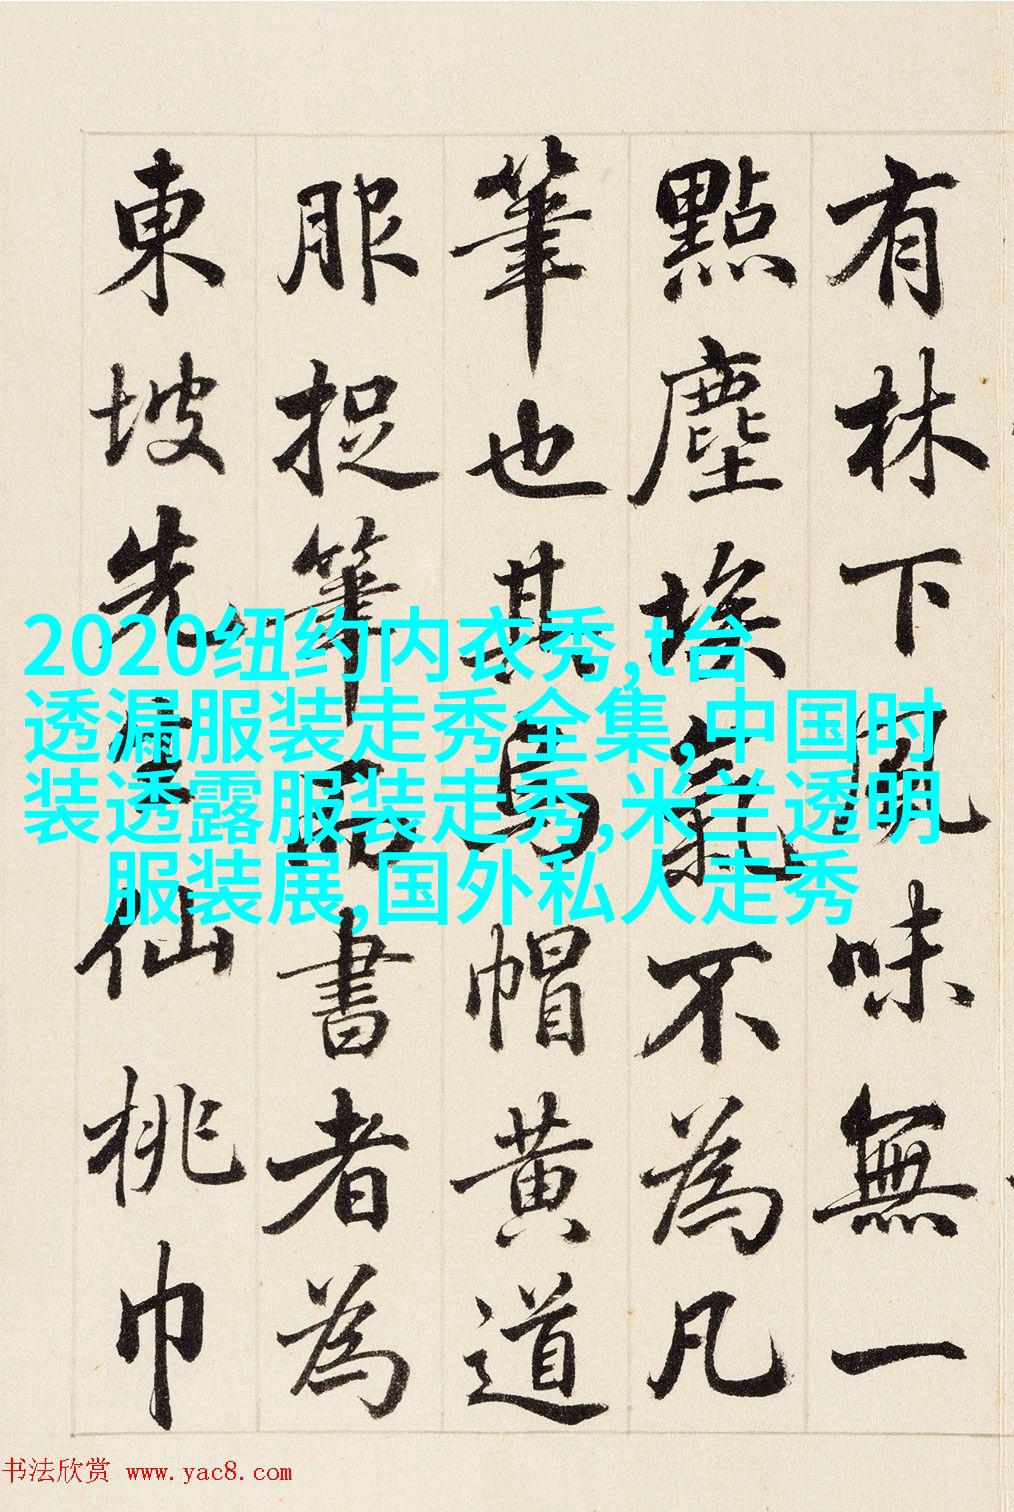 有林下風味無一
點塵埃氣不為凡
筆也其烏帽黃道
服捉筆而書者為
東坡先生仙桃巾
2020纽约内衣秀,t台
透漏服装走秀全集,中国时
装透露服装走秀,米兰透明
服装展,国外私人走秀
书法欣赏 www.yac8.com